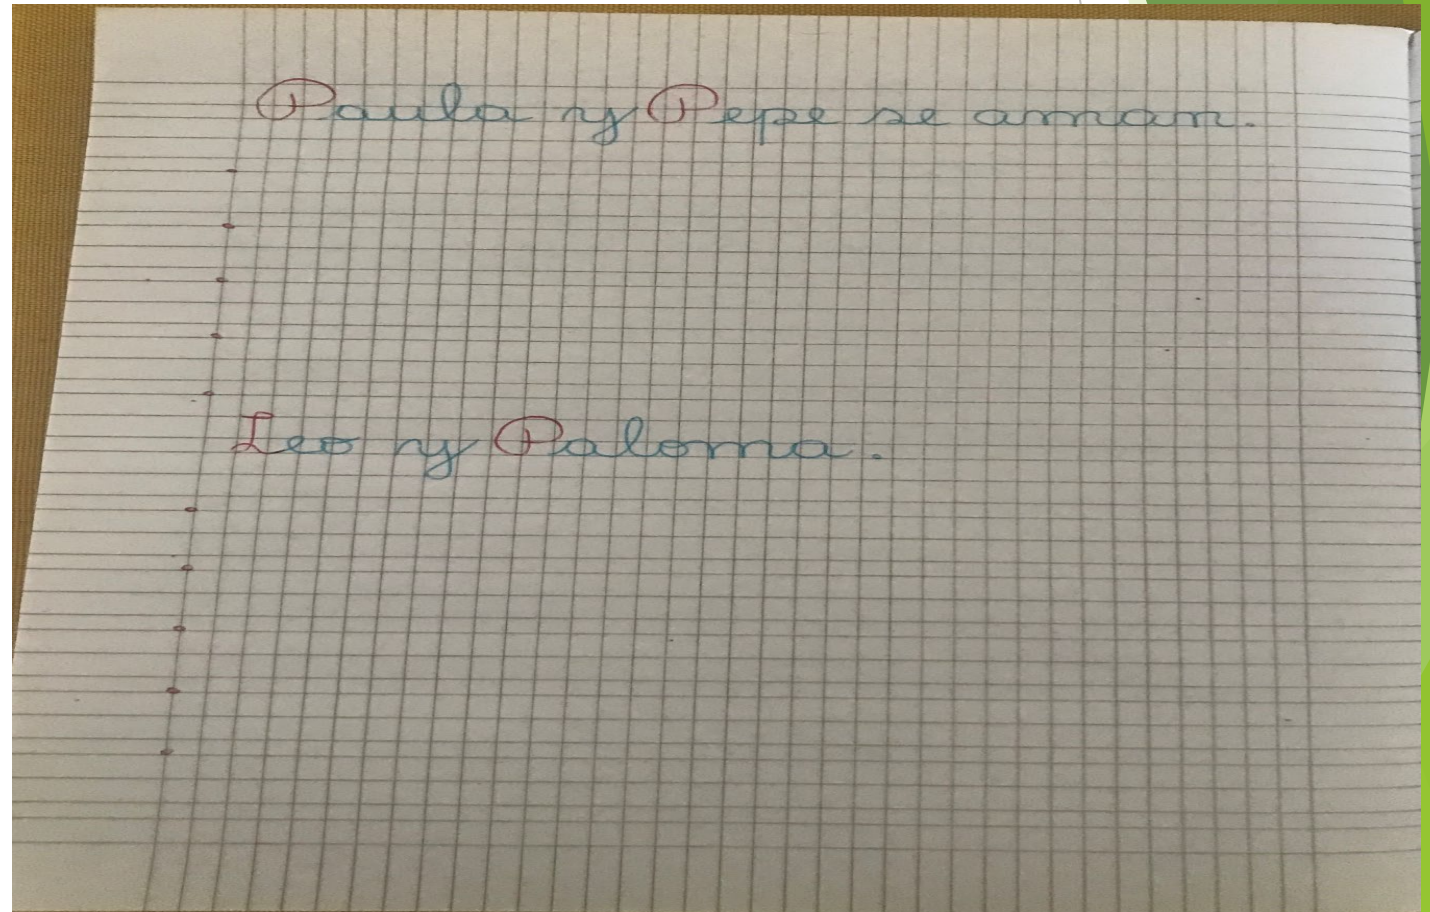 Paula y Pepe se aman.
Leo y Paloma.